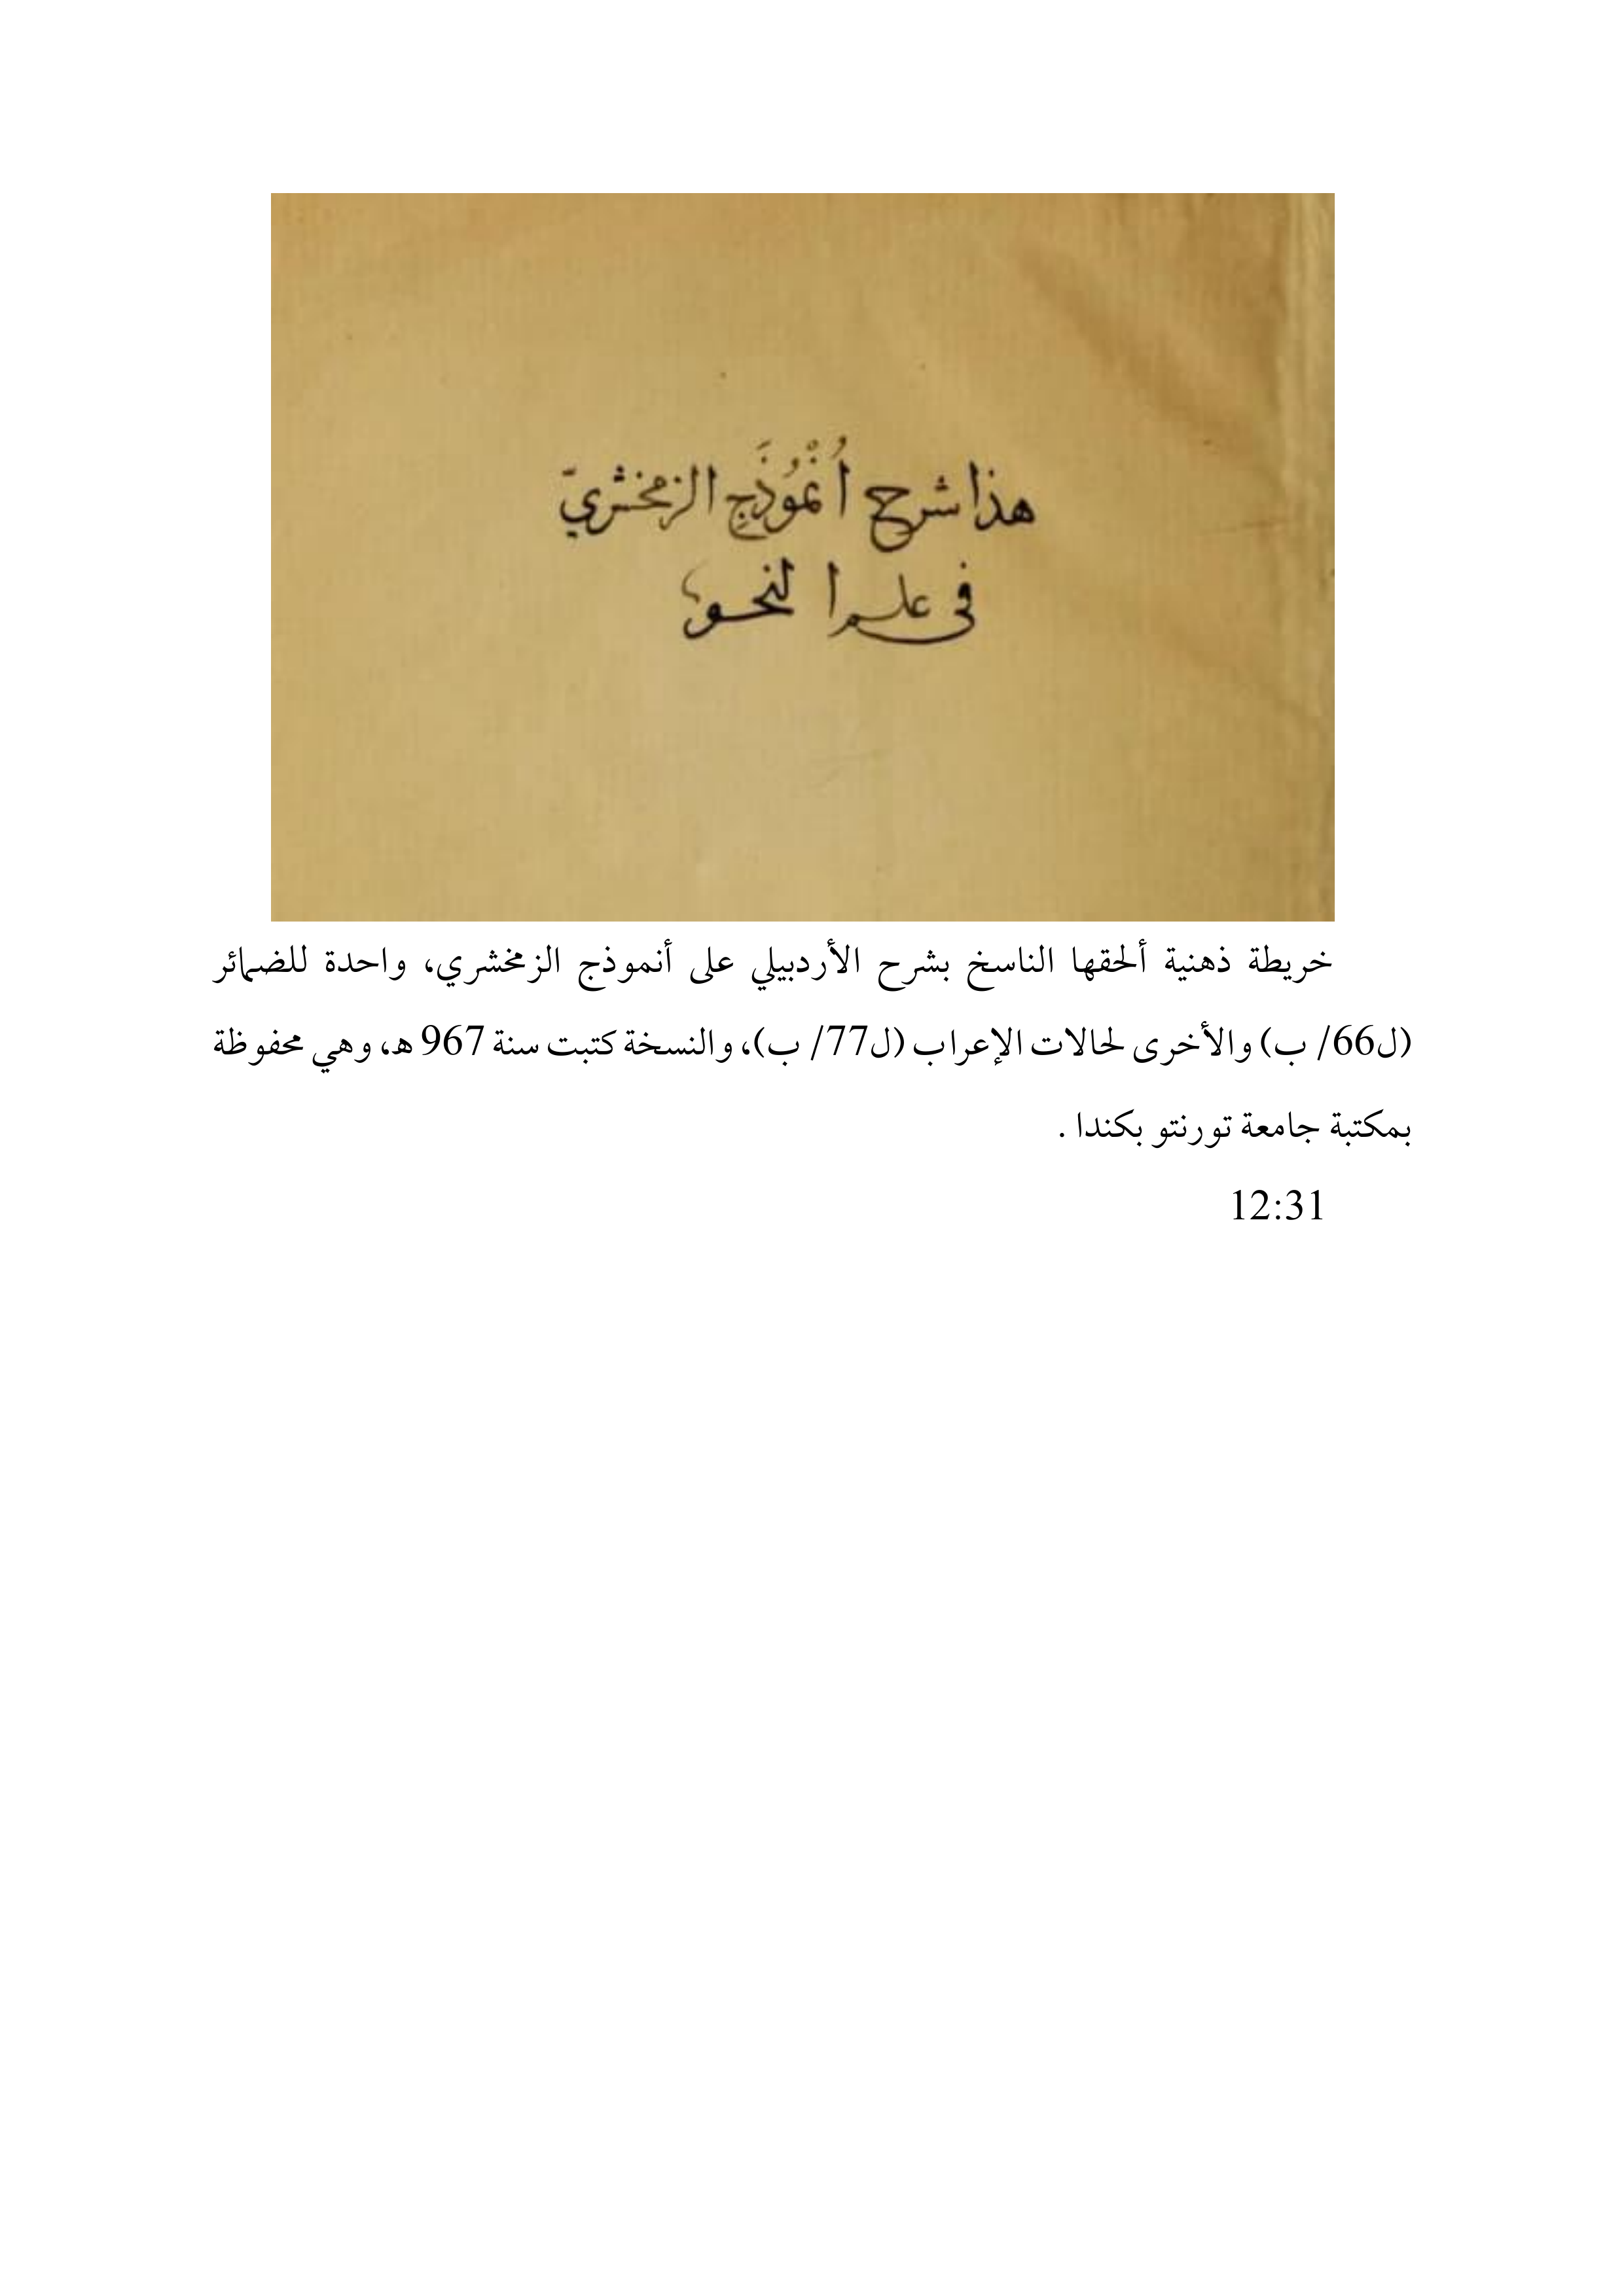 هذا شرح أُنْمُوذَجِ الزمخشريّ
في علم النحو
خريطة ذهنية ألحقها الناسخ بشرح الأردبيلي على أنموذج الزمخشري، واحدة للضمائر
(ل66/ ب) والأخرى لحالات الإعراب (ل77/ ب)، والنسخة كتبت سنة 967 هـ، وهي محفوظة
بمكتبة جامعة تورنتو بكندا .
12:31